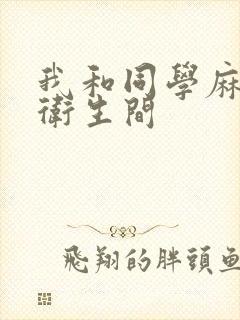 我和同學麻
衛生間
飛翔的胖頭魚